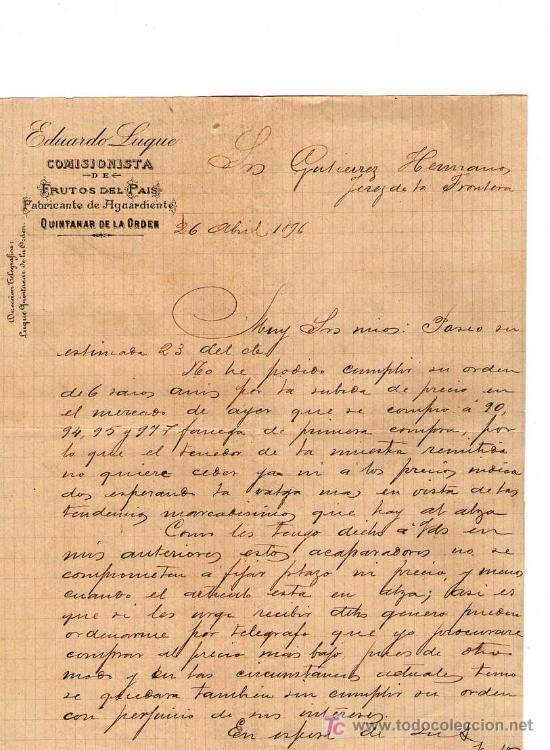 Eduardo Luque
COMISIONISTA
DE
FRUTOS DEL PAIS
Fabricante de Aguardiente
QUINTANAR DE LA ORDEN
Dirección Telegráfica:
Luque Quintanar de la Orden
Srs Gutierrez Hermanos
Jerez de la Frontera
26 Abril 1896
Muy Srs mios: Poseo su
estimada 23 del cte
No he podido cumplir su orden
de 6 sacos anis por la subida de precio en
el mercado de ayer que se compro á 90,
94, 95 y 97 fanega de primera compra, por
lo que el tenedor de la muestra remitida
no quiere ceder ya ni a los precios indica
dos esperando la valga mas en vista de las
tendencias marcadisimas que hay al alza
Como les tengo dicho á Vds en
mis anteriores estos acaparadores no se
comprometen a fijar plazo ni precio, y menos
cuando el articulo esta en alza; asi es
que si les urge recibir dicho genero pueden
ordenarme por telegrafo que yo procurare
comprar al precio mas bajo, pues de otro
modo y en las circunstancias actuales temo
se quedara tambien sin cumplir su orden
con perjuicio de sus intereses.
En espera de su
todocoleccion
www.todocoleccion.net